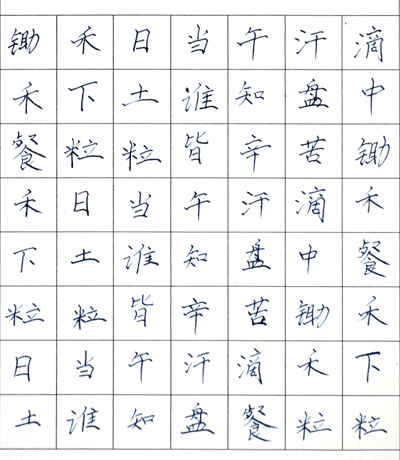 锄禾日当午汗滴
禾下土谁知盘中
餐粒粒皆辛苦锄
禾日当午汗滴禾
下土谁知盘中餐
粒粒皆辛苦锄禾
日当午汗滴禾下
土谁知盘餐粒粒